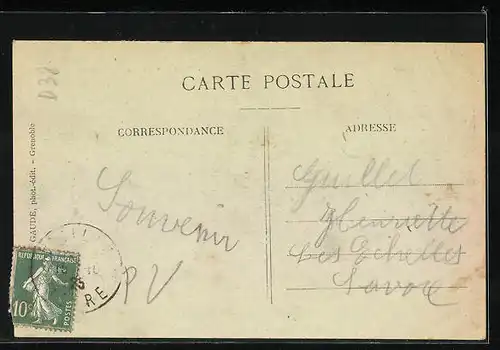 D38
CARTE POSTALE
CORRESPONDANCE
ADRESSE
GAUDE, phot.-édit. - Grenoble
Souvenir
PV
Guillet
Henriette
Les Echelles
Savoie
REPUBLIQUE FRANÇAISE
10c
POSTES
RE